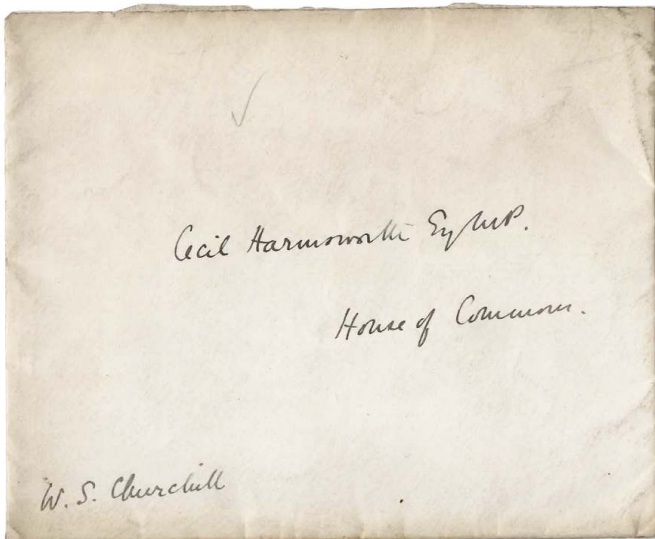 Cecil Harmsworth Esq M.P.
House of Commons.
W. S. Churchill